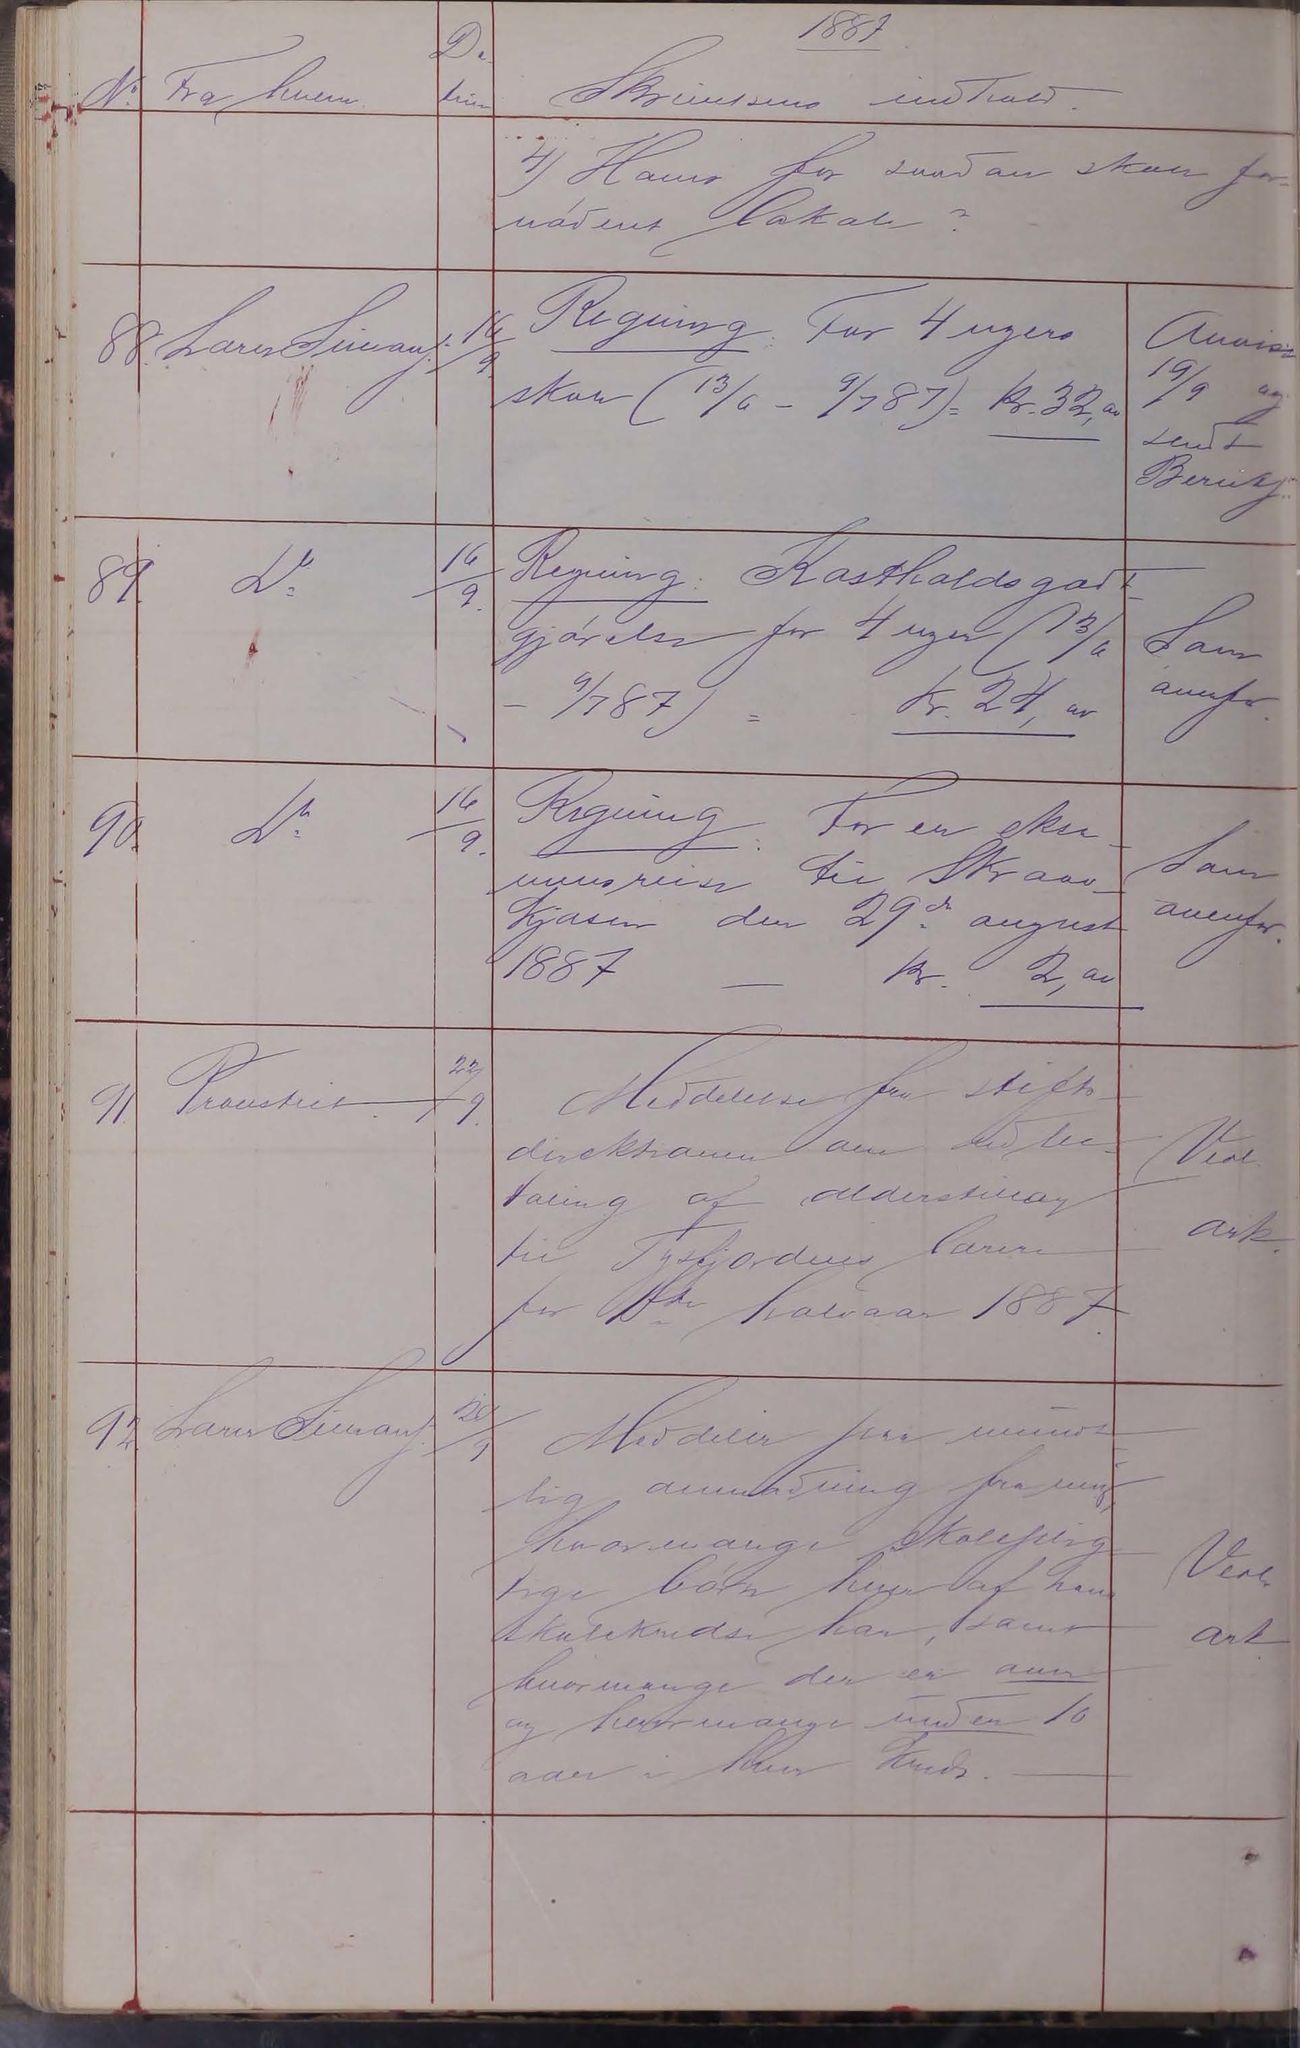 1887
No. Fra hvem. Da-
tum Skrivelsens indhold.
4) Haves for saadan skole for-
nødent lokale?
88. Lærer Simonsen 16/9. Regning. For 4 ugers
skole (13/6 - 9/7 87) = Kr. 32,00
Anvist
19/9 og
sendt
Berntsen
89. Do 16/9. Regning. Kostholdsgodt-
gjørelse for 4 uger (13/6
- 9/7 87) = Kr. 24,00
Som
ovenfor.
90. Do 16/9. Regning. For en eksa-
mensreise til Skrov-
kjosen den 29de august
1887 — Kr. 2,00
Som
ovenfor.
91. Provstiet. 22/9. Meddelelse fra stifts-
direktionen om udbe-
taling af alderstillæg
til Tysfjordens lærere
for 1ste halvaar 1887.
Vedl.
ark.
92. Lærer Simonsen 20/9 Meddeler paa mundt-
lig anmodning fra mig,
hvormange skolepligt-
tige børn hver af hans
skolekredse har, samt
hvormange der er over
og hvormange under 10
aar i hver kreds. —
Vedl.
ark